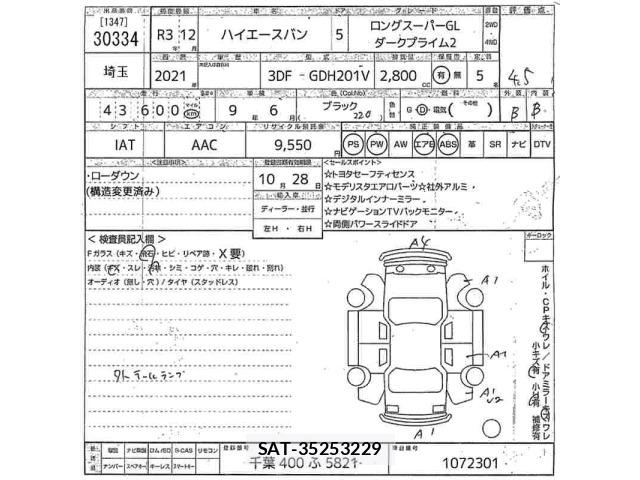 [1347]
30334
R3 12
ハイエースバン
5
ロングスーパーGL
ダークプライム2
2WD
4WD
評価点
埼玉
2021
3DF - GDH201V
2,800
CC
有 無
5
名
4.5
43600
km
9 年 6 月
ブラック
220
G・D・電気(
その他
)
B B
シフト
エアコン
リサイクル預託金
IAT
AAC
9,550
円
PS PW AW エアB ABS 革 SR ナビ DTV
・ローダウン
(構造変更済み)
10 月 28 日
ディーラー・並行
左H ・ 右H
<セールスポイント>
☆トヨタセーフティセンス
☆モデリスタエアロパーツ☆社外アルミ
☆デジタルインナーミラー
☆ナビゲーションTVバックモニター
☆両側パワースライドドア
キーロック
< 検査員記入欄 >
Fガラス(キズ・飛石・ヒビ・リペア跡・X要)
オーディオ(刺し・穴)/タイヤ(スタッドレス)
外テールランプ
A4
A1
A1
A1
U2
A1
SAT-35253229
千葉 400 ふ 5821
1072301